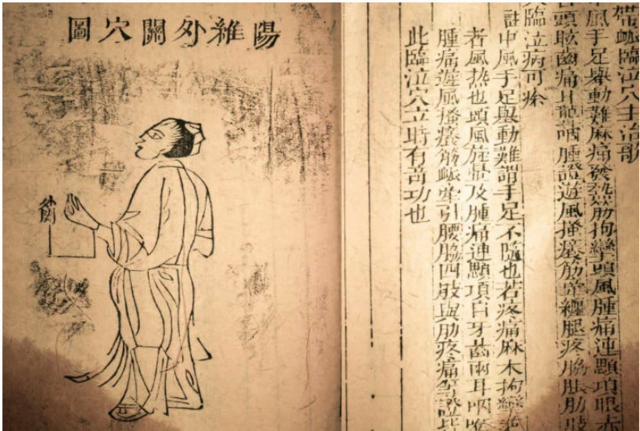 帶䘑臨泣穴主治歌
風手足舉動難麻痛發熱筋拘攣頭風腫痛連顋項眼赤
頭眩齒痛耳聾咽腫證遊風搔癢筋牽纏腿疼脇脹肋肢
臨泣病可痊
註中風手足舉動難謂手足不隨也若疼痛麻木拘攣
者風熱也頭風旋暈及腫痛連顋項目牙齒兩耳咽喉
腫痛遊風搔癢筋䘑牽引腰脇四肢與肋疼痛等證
此臨泣穴立時有奇功也
陽維外關穴圖